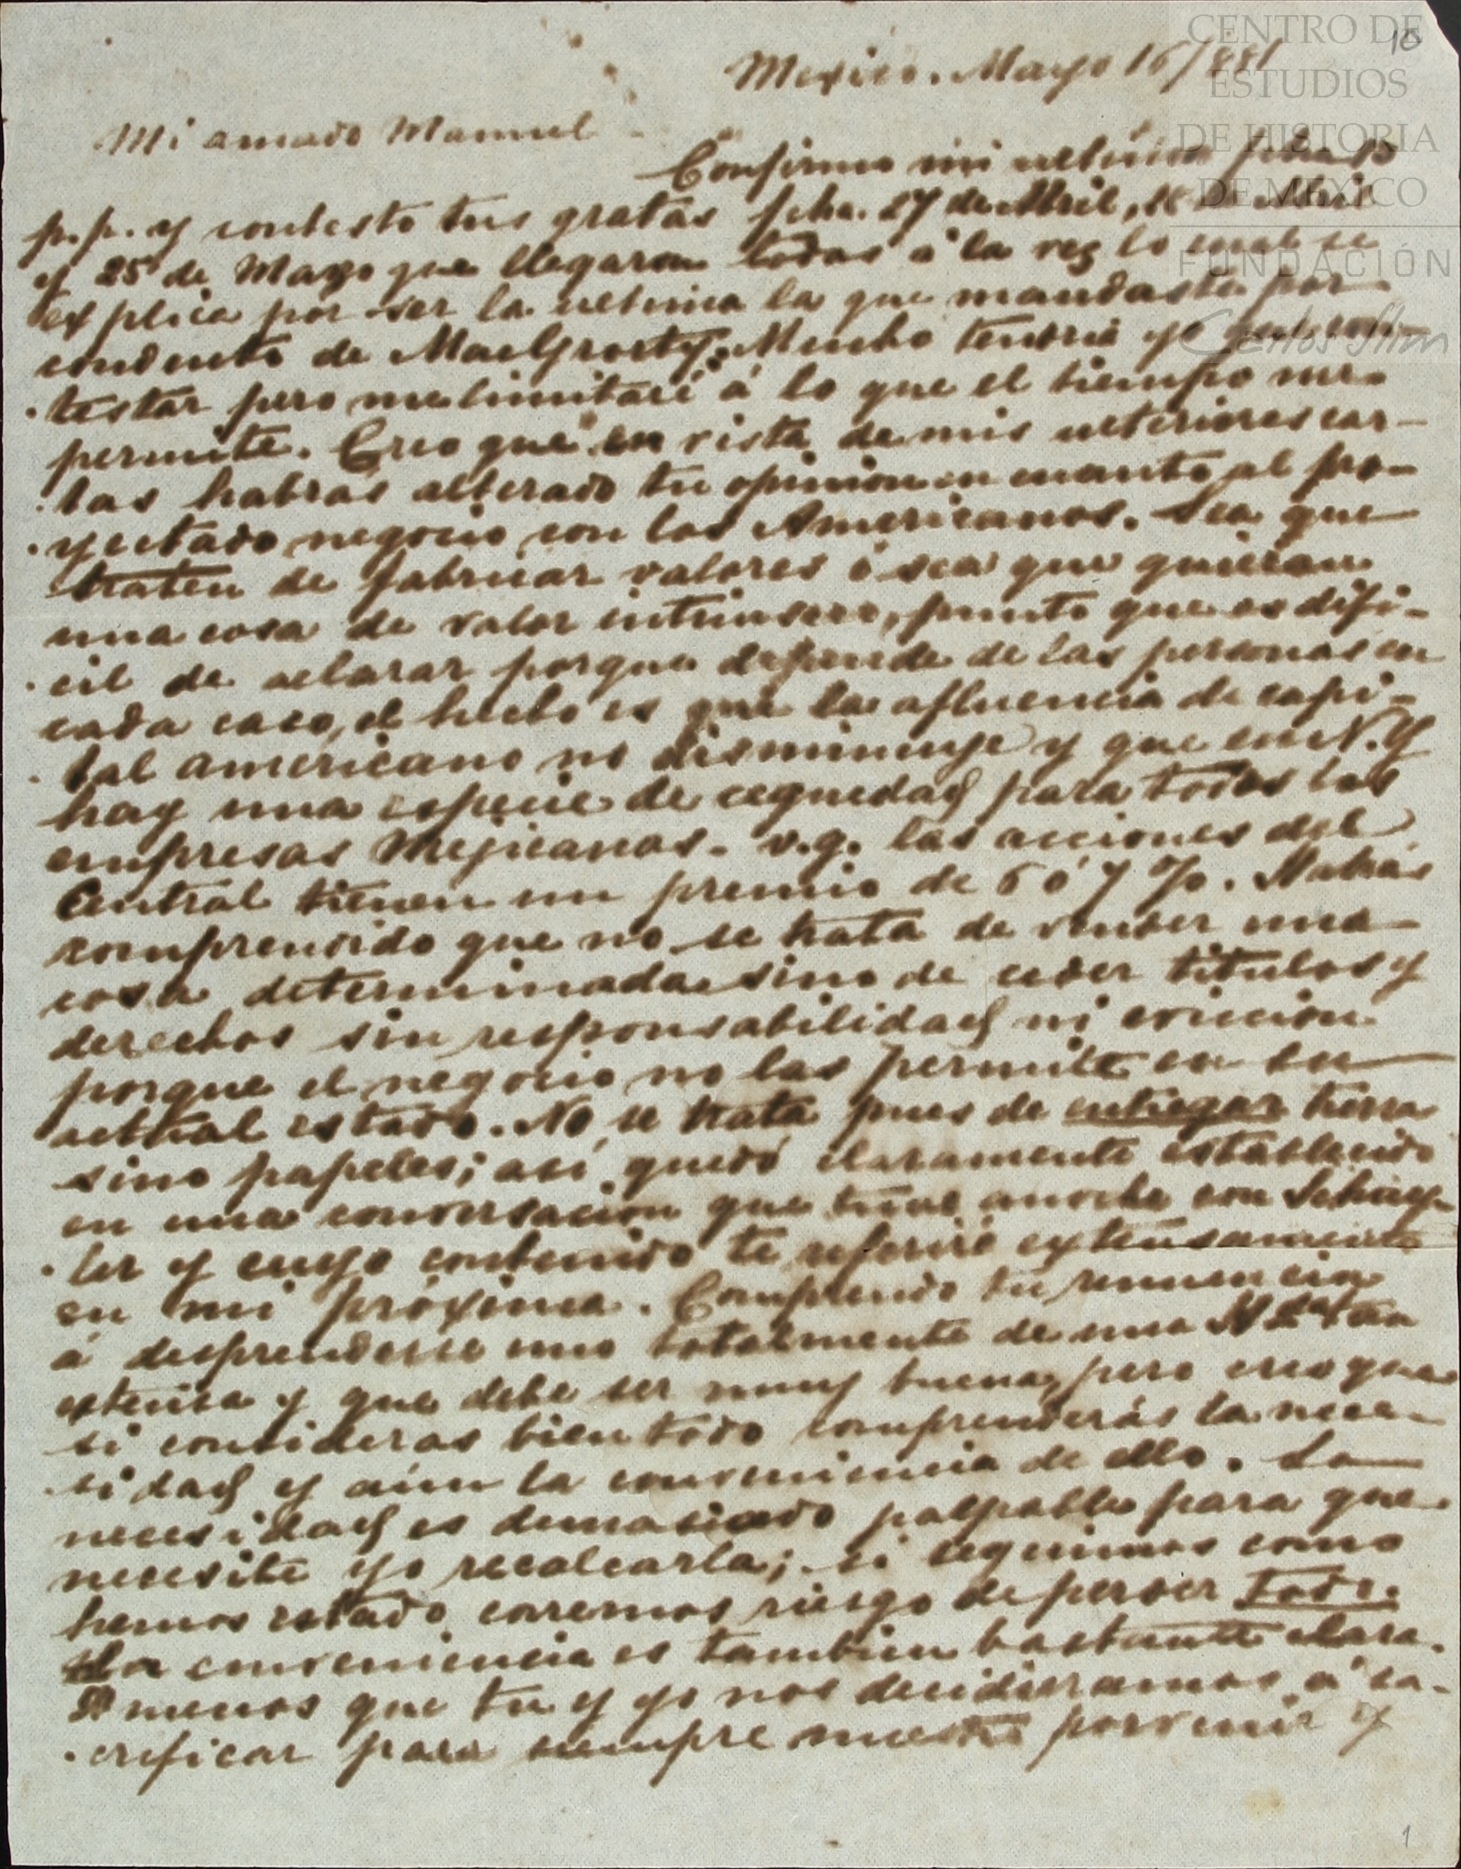 CENTRO DE
ESTUDIOS
DE HISTORIA
DE MÉXICO
FUNDACIÓN
Carlos Slim
10
Mexico. Mayo 16/881
Mi amado Manuel
Confirmo mi ultima fcha 15
p.p. y contesto tus gratas fcha. 27 de Abril, de Abril
y 25 de Marzo que llegaron todas á la vez lo cual se
explica por ser la ultima la que mandaste por
conducto de MacGrorty. Mucho tendria yo que con-
testar pero me limitaré á lo que el tiempo me
permite. Creo que en vista de mis ulteriores car-
tas habrás alterado tu opinion en cuanto al pro-
yectado negocio con los Americanos. Sea que
traten de fabricar valores ó sea que quieran
una cosa de valor intrinseco, punto que es difi-
cil de aclarar porque depende de las personas en
cada caso, el hecho es que la afluencia de capi-
tal americano no disminuye y que en N.Y
hay una especie de ceguedad para todas las
empresas Mejicanas. v.g. las acciones del
Central tienen un premio de 6 ó 7 %. Habrás
comprendido que no se trata de vender una
cosa determinada sino de ceder titulos y
derechos sin responsabilidad ni eviccion
porque el negocio no las permite en su
actual estado. No se trata pues de entregar tierra
sino papeles; así quedó claramente establecido
en una conversacion que tuve anoche con Schuy-
ler y cuyo contenido te referiré extensamente
en mi próxima. Comprendo tu renuencia
á desprenderse uno totalmente de una Hda tan
extensa y que debe ser muy buena, pero creo que
si consideras bien todo comprenderás la nece-
sidad y aún la conveniencia de ello. La
necesidad es demasiado palpable para que
necesite yo recalcarla; si seguimos como
hemos estado corremos riesgo de perder todo.
La conveniencia es tambien bastante clara.
A menos que tu y yo nos decidieramos á sa-
crificar para siempre nuestro porvenir y
1